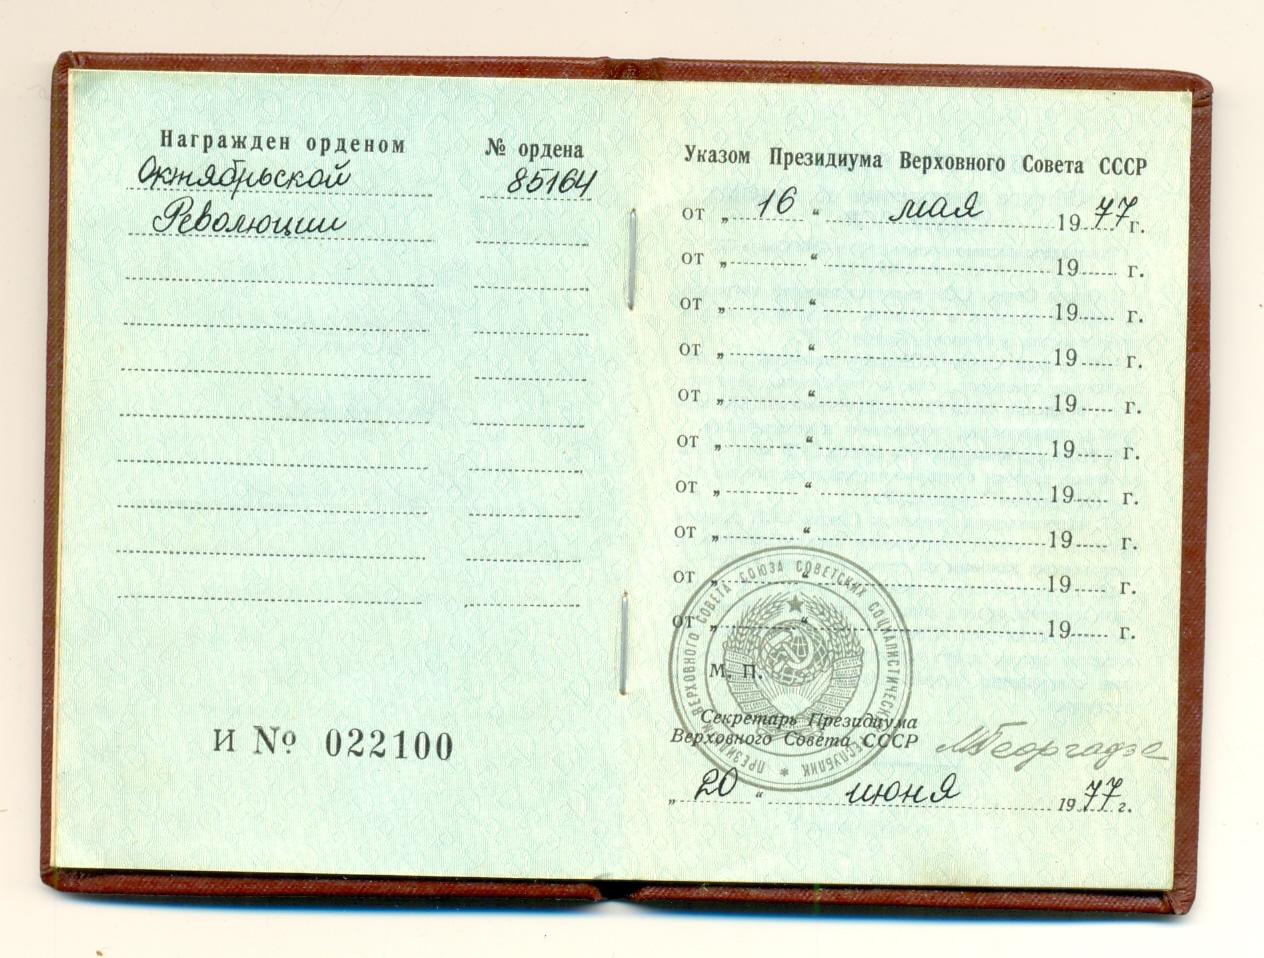 Награжден орденом
№ ордена
Октябрьской
85164
Революции
И № 022100
Указом Президиума Верховного Совета СССР
от „ 16 “ мая 1977 г.
от „ “ 19 г.
от „ “ 19 г.
от „ “ 19 г.
от „ “ 19 г.
от „ “ 19 г.
от „ “ 19 г.
от „ “ 19 г.
от „ “ 19 г.
от „ “ 19 г.
ПРЕЗИДИУМ ВЕРХОВНОГО СОВЕТА СОЮЗА СОВЕТСКИХ СОЦИАЛИСТИЧЕСКИХ РЕСПУБЛИК
М. П.
Секретарь Президиума
Верховного Совета СССР
МГеоргадзе
„ 20 “ июня 1977 г.